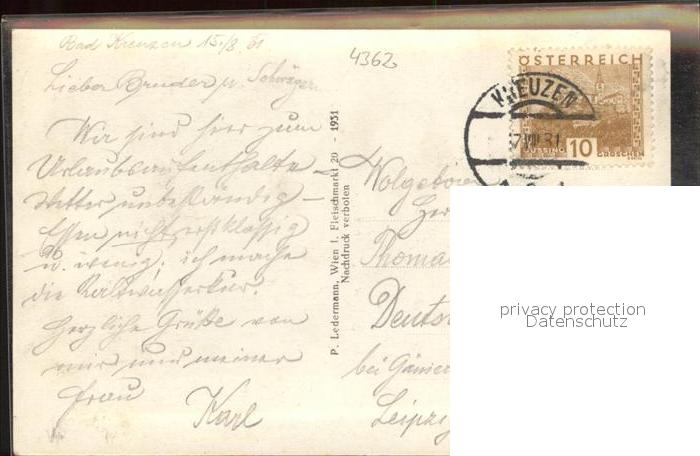 Bad Kreuzen 15./8. 31
4362
Lieber Bruder u. Schwäger.
Wir sind hier zum
Urlaubsaufenthalte –
Wetter unbeständig –
Essen nicht erstklassig
u. wenig. ich mache
die Kaltwasserkur.
Herzliche Grüße von
mir und meiner
Frau
Karl
P. Ledermann, Wien I, Fleischmarkt 20 - 1931
Nachdruck verboten
ÖSTERREICH
GÜSSING 10 GROSCHEN
KREUZEN
VIII 31
Wolgeboren
Thoma
Deuts
bei
Leipzig
privacy protection
Datenschutz